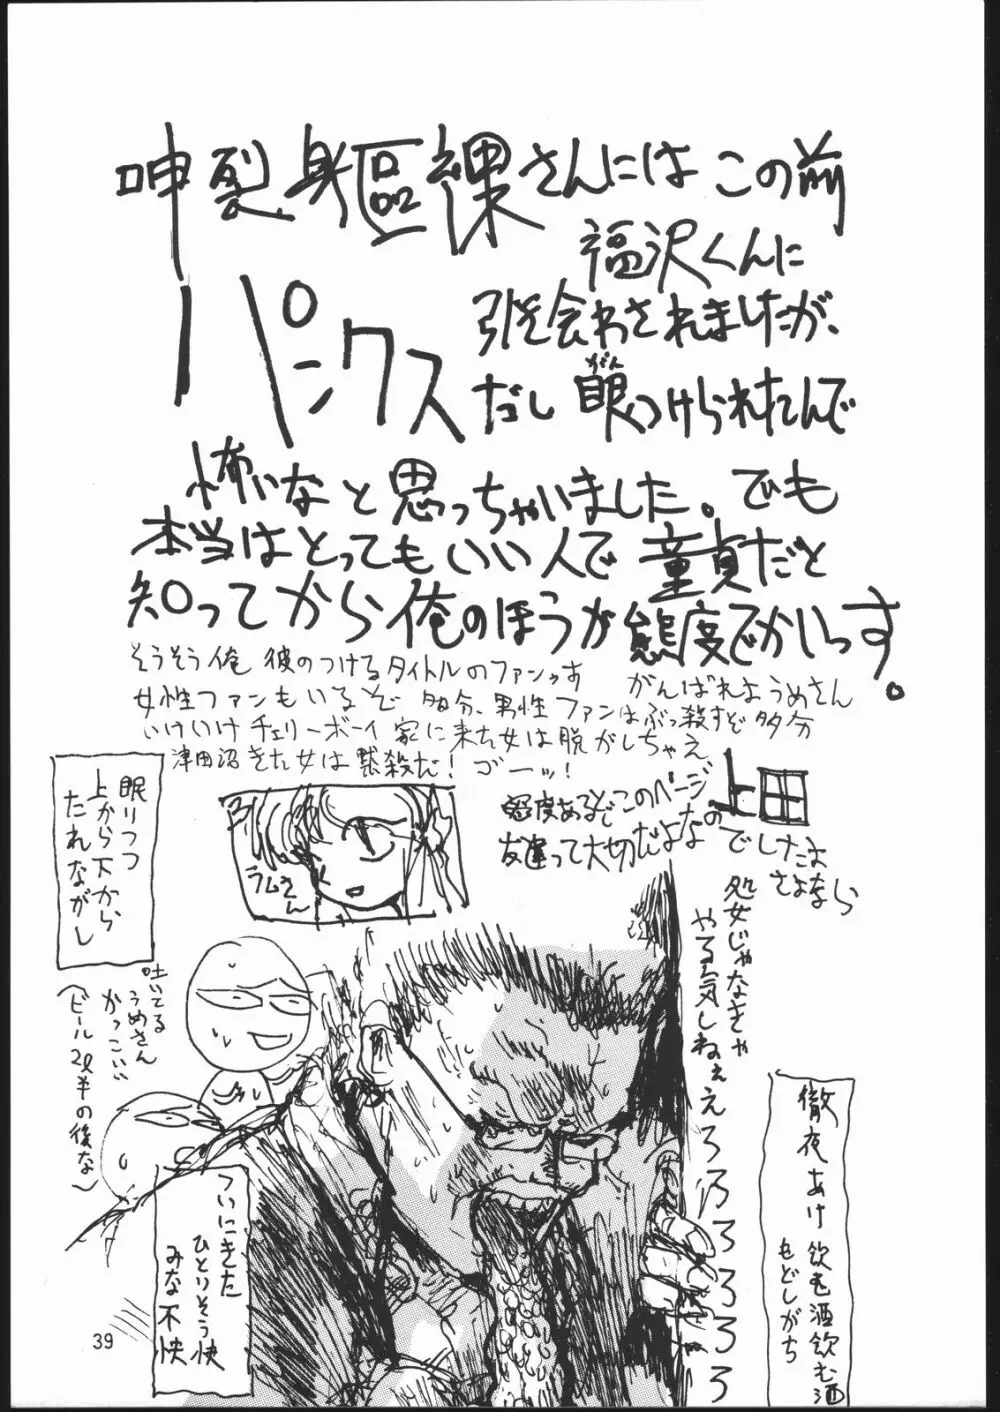 呻裂身區裸さんには この前
福沢くんに
パンクス
引き会わされましたが、
だし 眼つけられたんで
がん
怖いなと思っちゃいました。でも
本当はとってもいい人で 童貞だと
知ってから俺のほうが態度でかいっす。
そうそう俺 彼のつけるタイトルのファンっす
女性ファンもいるぞ 多分、男性ファンはぶっ殺すぞ多分
がんばれようめさん
いけいけチェリーボーイ 家に来た女は脱がしちゃえ
津田沼きた女は黙殺だ! ゴーッ!
上田
態度あるぞこのページ
友達って大切だよなの
でしたよ
さよなら
眠りつつ
上から下から
たれながし
ラムさん
吐いてる
うめさん
かっこいい
(ビール2ℓ半の後な)
処女じゃなきゃ
やる気しねぇえろろろろろろろ
徹夜あけ 飲む酒飲む酒
もどしがち
ついにきた
ひとりそう快
みな不快
39